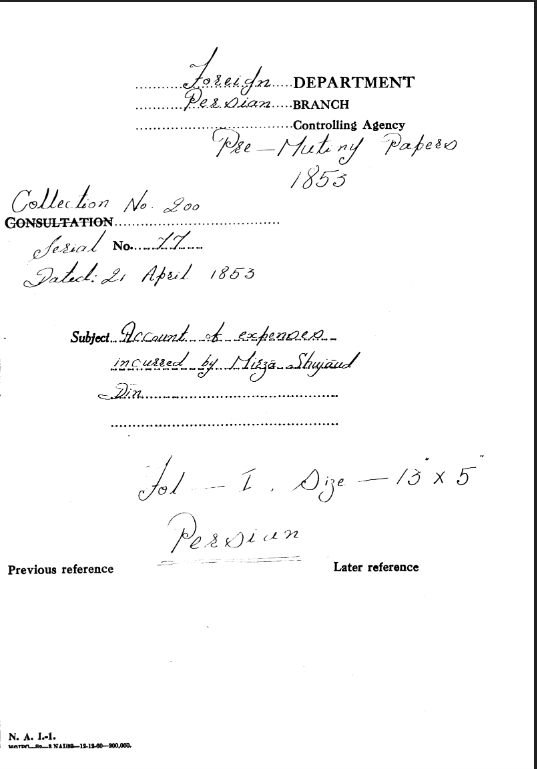 Foreign.....DEPARTMENT
Persian.....BRANCH
........................................Controlling Agency
Pre-Mutiny Papers
1853
Collection No. 200
CONSULTATION..........................................
Serial No. 77
Dated: 21 April 1853
Subject Account of expenses
incurred by Mirza Shujaud
Din
Fol - I. Size - 13" x 5"
Persian
Previous reference Later reference
N. A. I.-1.